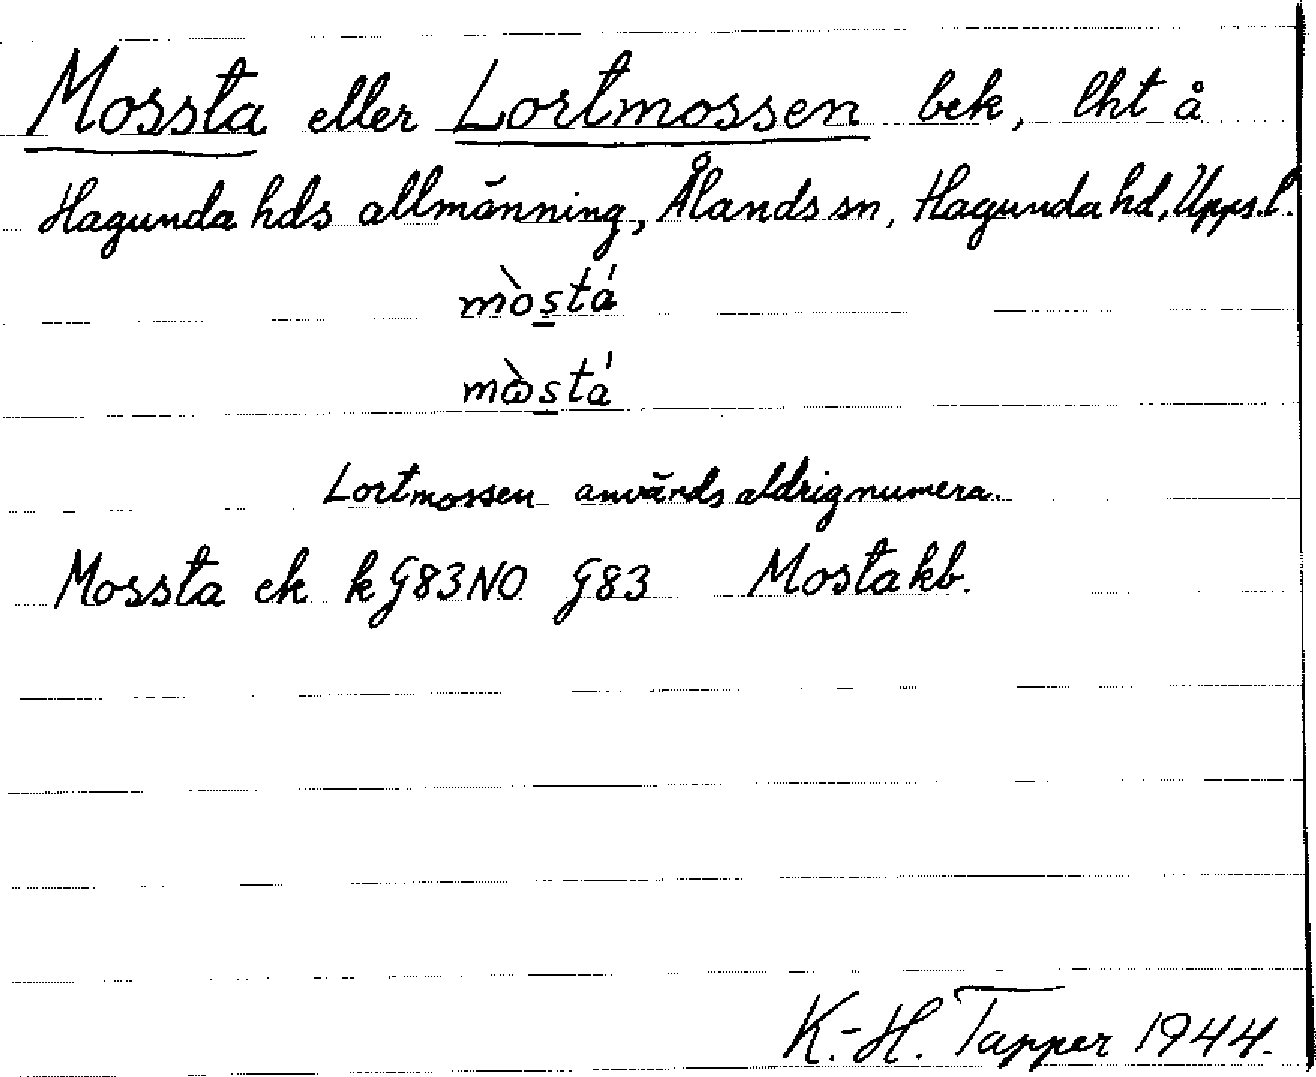 Mossta eller Lortmossen bek, lht å
Hagunda hds allmänning, Ålands sn, Hagunda hd, Upps.l.
mòstá
mὼstá
Lortmossen används aldrig numera.
Mossta ek k G83NO G83 Mosta kb.
K.-H. Tapper 1944.